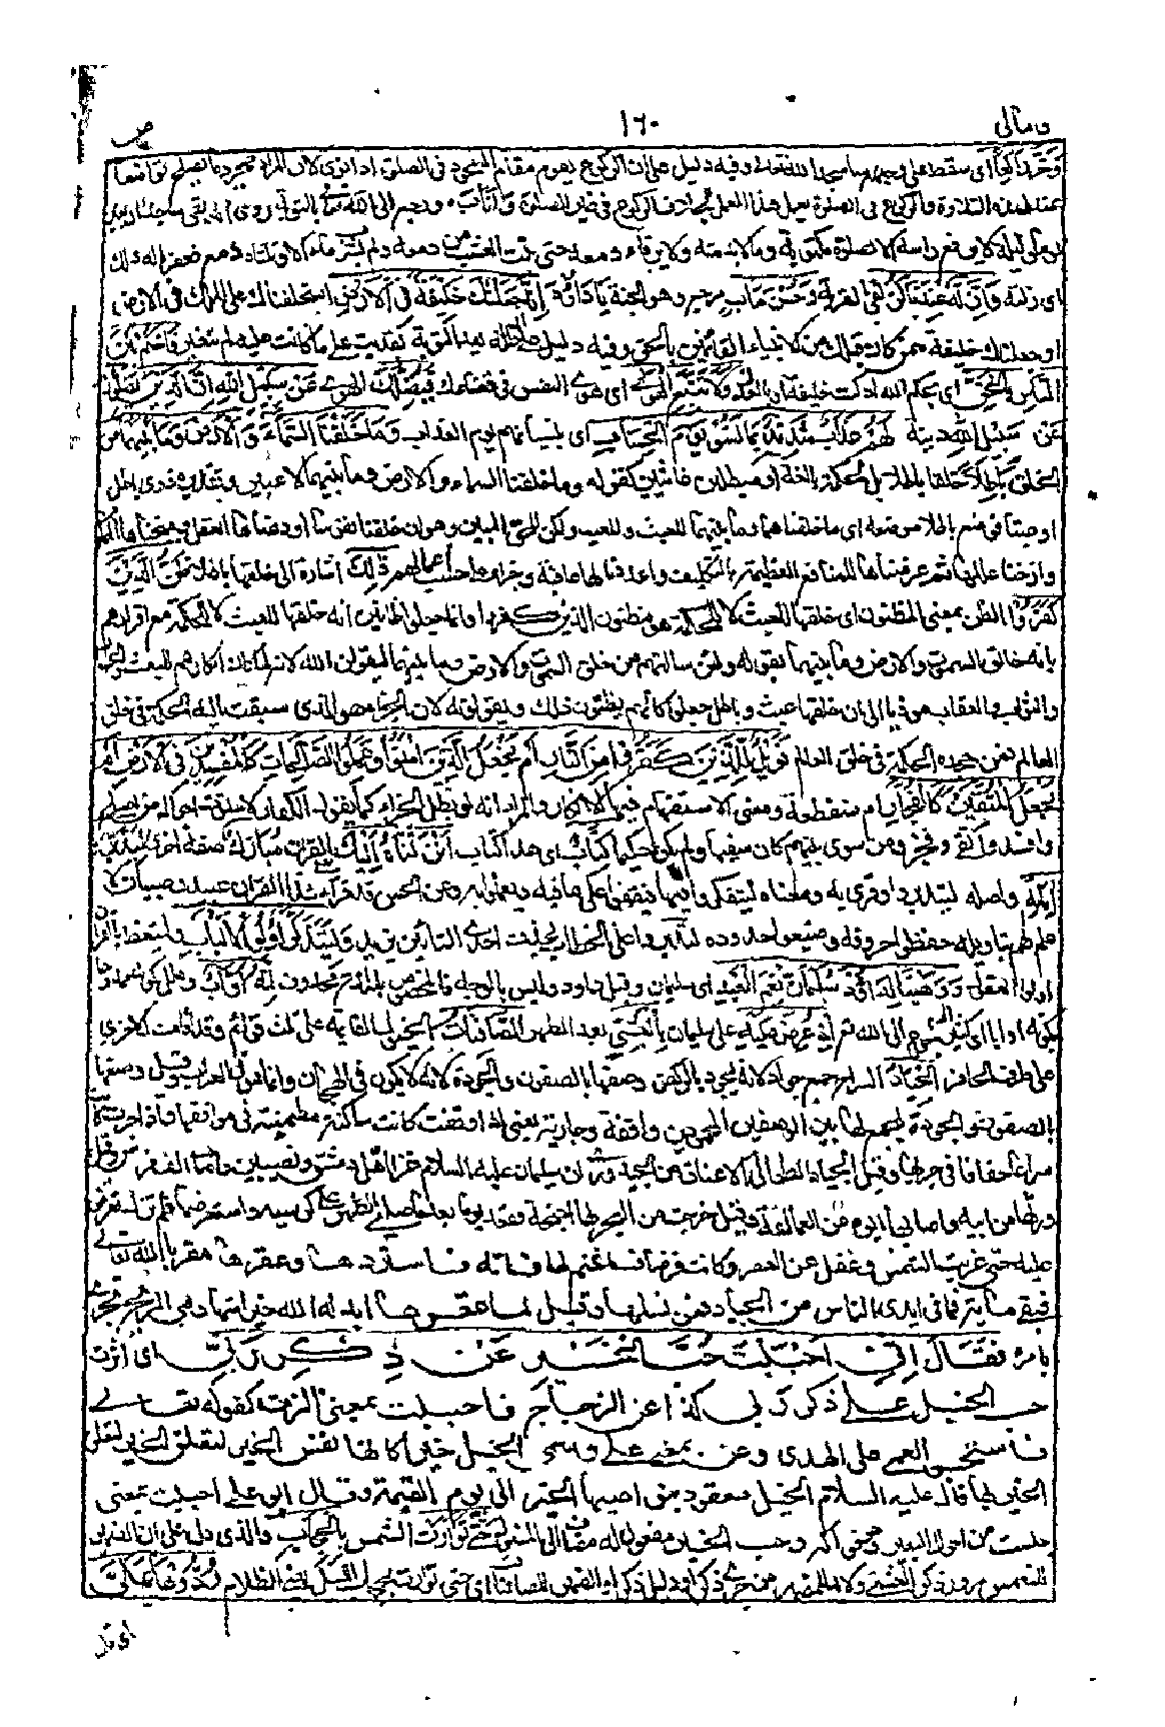 ومالی ١٦٠ ص
وَخَرَّ رَاكِعًا ای سقط علی وجهه ساجدا لله تعالی وفیه دلیل علی ان الرکوع یقوم مقام السجود فی الصلوة اذا نوی لان المراد مجرد ما یصلح تواضعا
عند هذه التلاوة والرکوع فی الصلوة یعمل هذا العمل بخلاف الرکوع فی غیر الصلوة وَأَنَابَ ورجع الی الله بالتوبة روی انه بقی ساجدا اربعین
لیلة لا یرفع راسه الا لصلوة مکتوبة وما لا بد منه ولا یرقأ دمعه حتی نبت العشب من دمعه ولم یشرب ماء الا وثلثاه دمع فغفرنا له ذلك
ای زلته وَإِنَّ لَهُ عِنْدَنَا لَزُلْفَى لقربة وَحُسْنَ مَآبٍ مرجع وهو الجنة يَا دَاوُدُ إِنَّا جَعَلْنَاكَ خَلِيفَةً فِي الْأَرْضِ استخلفناك علی الملك فی الارض
او جعلناك خلیفة ممن کان قبلك من الانبیاء القائمین بالحق وفیه دلیل علی ان حاله بعد التوبة بقیت علی ما کانت علیه لم تتغیر فَاحْكُمْ بَيْنَ
النَّاسِ بِالْحَقِّ ای بحکم الله اذ کنت خلیفته او بالعدل وَلَا تَتَّبِعِ الْهَوَى ای هوی النفس فی قضائك فَيُضِلَّكَ الهوی عَنْ سَبِيلِ اللَّهِ إِنَّ الَّذِينَ يَضِلُّونَ
عَنْ سَبِيلِ اللَّهِ دینه لَهُمْ عَذَابٌ شَدِيدٌ بِمَا نَسُوا يَوْمَ الْحِسَابِ ای بنسیانهم یوم الحساب وَمَا خَلَقْنَا السَّمَاءَ وَالْأَرْضَ وَمَا بَيْنَهُمَا من
الخلق بَاطِلًا خلقا باطلا لا لحکمة بالغة او مبطلین عابثین کقوله وما خلقنا السماء والارض وما بینهما لاعبین وتقدیره ذوی باطل
او عبثا فوضع باطلا موضعه ای ما خلقناهما وما بینهما للعبث واللعب ولکن للحق المبین وهو ان خلقنا نفوسا اودعناها العقل ومنحناها التمکین
وازحنا عللها ثم عرضناها للمنافع العظیمة بالتکلیف واعددنا لها عاقبة وجزاء علی حسب اعمالهم ذَلِكَ اشارة الی خلقها باطلا ظَنُّ الَّذِينَ
كَفَرُوا الظن بمعنی المظنون ای خلقها للعبث لا للحکمة هو مظنون الذین کفروا وانما جعلوا ظانین انه خلقها للعبث لا للحکمة مع اقرارهم
بانه خالق السموات والارض وما بینهما بقوله ولئن سالتهم من خلق السموات والارض وما بینهما لیقولن الله لانه لما کان انکارهم للبعث والحساب
والثواب والعقاب مؤدیا الی ان خلقها عبث وباطل جعلوا کانهم یظنون ذلك ویقولونه لان الجزاء هو الذی سبقت الیه الحکمة فی خلق
العالم فمن جحده فقد جحد الحکمة فی خلق العالم فَوَيْلٌ لِلَّذِينَ كَفَرُوا مِنَ النَّارِ أَمْ نَجْعَلُ الَّذِينَ آمَنُوا وَعَمِلُوا الصَّالِحَاتِ كَالْمُفْسِدِينَ فِي الْأَرْضِ أَمْ
نَجْعَلُ الْمُتَّقِينَ كَالْفُجَّارِ ام منقطعة ومعنی الاستفهام فیها الانکار والمراد انه لو بطل الجزاء کما یقوله الکفار لاستوت احوال من اصلح
وافسد واتقی وفجر ومن سوی بینهم کان سفیها ولم یکن حکیما كِتَابٌ ای هذا کتاب أَنْزَلْنَاهُ إِلَيْكَ یعنی القران مُبَارَكٌ صفة اخری لِيَدَّبَّرُوا
آيَاتِهِ واصله لیتدبروا وقری به ومعناه لیتفکروا فیها فیقفوا علی ما فیه ویعملوا به وعن الحسن قد قرأ هذا القران عبید وصبیان لا
علم لهم بتاویله حفظوا حروفه وضیعوا حدوده وَلِيَتَذَكَّرَ أُولُو الْأَلْبَابِ ولیتعظ بالقران
اولو العقول وَوَهَبْنَا لِدَاوُدَ سُلَيْمَانَ نِعْمَ الْعَبْدُ ای سلیمان وقیل داود ولیس بالوجه فالمخصوص بالمدح محذوف إِنَّهُ أَوَّابٌ وعلل کونه ممدوحا
بکونه اوابا ای کثیر الرجوع الی الله إِذْ عُرِضَ عَلَيْهِ علی سلیمان بِالْعَشِيِّ بعد الظهر الصَّافِنَاتُ الخیول القائمة علی ثلث قوائم وقد اقامت الاخری
علی طرف الحافر الْجِيَادُ السراع جمع جواد لانه یجود بالرکض وصفها بالصفون والجودة لانه لا یکون فی الهجان وانما هو فی العراب وقیل وصفها
بالصفون والجودة لیجمع لها بین الوصفین المحمودین واقفة وجاریة یعنی اذا وقفت کانت ساکنة مطمئنة فی مواقفها واذا جرت کانت
سراعا خفافا فی جریها وقیل الجیاد الطوال الاعناق من الجید وروی ان سلیمان علیه السلام غزا اهل دمشق ونصیبین فاصاب الف فرس وقیل
ورثها من ابیه واصابها ابوه من العمالقة وقیل خرجت من البحر لها اجنحة فقعد یوما بعد ما صلی الظهر علی کرسیه واستعرضها فلم تزل تعرض
علیه حتی غربت الشمس وغفل عن العصر وکانت فرضا فاغتم لما فاته فاستردها وعقرها مقربا لله تعالی
فبقی مائة فما فی ایدی الناس من الجیاد فمن نسلها وقیل لما عقرها ابدله الله خیرا منها وهی الریح تجری
بامره فَقَالَ إِنِّي أَحْبَبْتُ حُبَّ الْخَيْرِ عَنْ ذِكْرِ رَبِّي ای اثرت
حب الخیل علی ذکر ربی کذا عن الزجاج فاحببت بمعنی اثرت کقوله تعالی
فاستحبوا العمی علی الهدی وعن بمعنی علی وسمی الخیل خیرا کانها نفس الخیر لتعلق الخیر بها
الخیر بها قال علیه السلام الخیل معقود بنواصیها الخیر الی یوم القیمة وقال ابو علی احببت بمعنی
جلست من احباب البعیر وهو بروکه وحب الخیر مفعول له مضاف الی المفعول حَتَّى تَوَارَتْ الشمس بِالْحِجَابِ والذی دل علی ان الضمیر
للشمس مرور ذکر العشی ولا بد للمضمر من جری ذکر او دلیل ذکر او الضمیر للصافنات ای حتی توارت بحجاب اللیل یعنی الظلام رُدُّوهَا عَلَيَّ
ای قال